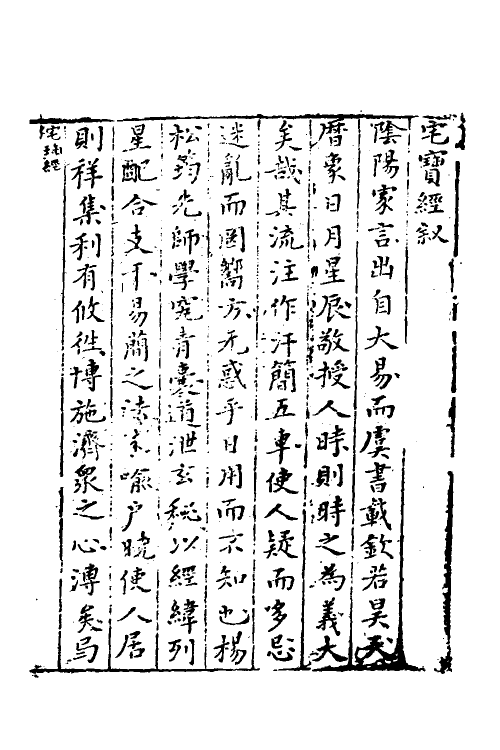 宅寶經叙
陰陽家言出自大易而虞書載欽若昊天
曆象日月星辰敬授人時則時之為義大
矣哉其流注作汗簡五車使人疑而多忌
迷亂而罔嚮方无惑乎日用而不知也楊
松筠先師學究青囊道泄玄秘以經緯列
星配合支干易簡之法家喻户曉使人居
則祥集利有攸徃博施濟衆之心溥矣烏
宅寶經